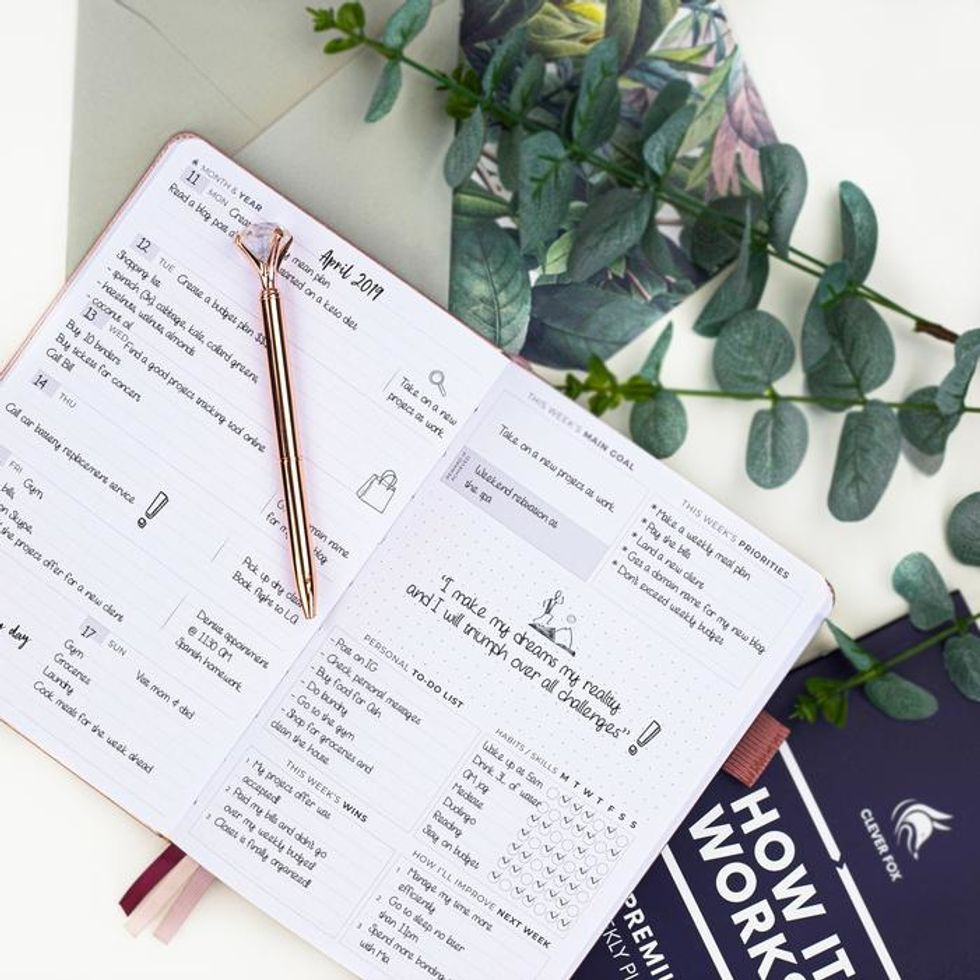 MONTH & YEAR
April 2019
11
MON
meal plan
Read a blog post
learned on a keto diet
12
TUE
Create a budget plan
Shopping list
- spinach (3x) cabbage, kale, collard greens,
- hazelnuts, walnuts, almonds
- coconut oil
13
WED
Find a good project tracking tool online
Buy 10 binders
Buy tickets for concert
Call Bill
Take on a new
project at work
14
THU
Call car battery replacement service
main name
for
blog
FRI
Gym
bills
on Skype,
the project offer for a new client
Pick up dry
Book flight to LA
day
Dentist appointment
@ 11:30 AM
Spanish homework
17
SUN
Gym
Groceries
Laundry
Cook meals for the week ahead
Visit mom & dad
THIS WEEK'S MAIN GOAL
Take on a new project at work
Weekend relaxation at
the spa
THIS WEEK'S PRIORITIES
* Make a weekly meal plan
* Pay the bills
* Land a new client
* Get a domain name for my new blog
* Don't exceed weekly budget
"I make my dreams my reality
and I will triumph over all challenges"
PERSONAL TO-DO LIST
- Post on IG
- Check personal messages
- Buy food for Ash
- Do laundry
- Go to the gym
- Shop for groceries and
clean the house
THIS WEEK'S WINS
1 My project offer was
accepted!
2 Paid my bills and didn't go
over my weekly budget!
3 Closet is finally organized!
HABITS / SKILLS M T W T F S S
Wake up at 5am
Drink 3L of water
AM jog
Meditate
Duolingo
Reading
Stay on budget
HOW I'LL IMPROVE NEXT WEEK
1 Manage my time more
efficiently
2 Go to sleep no later
than 11pm
3 Spend more bonding
with Mia
CLEVER FOX
HOW IT
WORK
PREMI
KLY PL